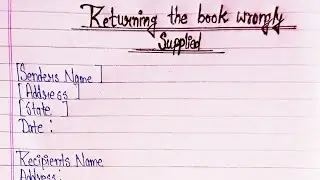 Returning the book wrongly
Supplied
[Senders Name]
[Address]
[State]
Date :
Recipients Name
Address :